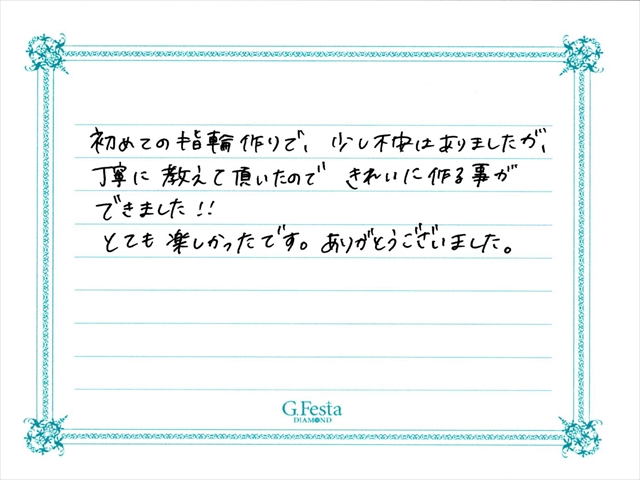 初めての指輪作りで、少し不安はありましたが、
丁寧に教えて頂いたので きれいに作る事が
できました!!
とても楽しかったです。ありがとうございました。
G.Festa
DIAMOND